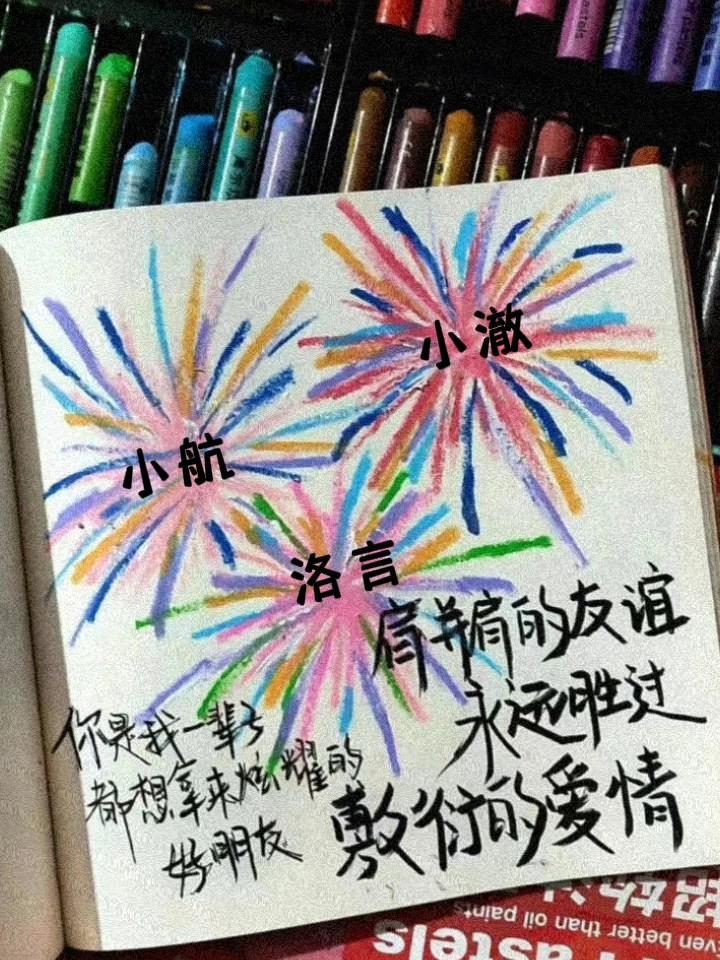 小澈
小航
洛言
肩并肩的友谊
永远胜过
敷衍的爱情
你是我一辈子
都想拿来炫耀的
好朋友
even better than oil paints
Pastels